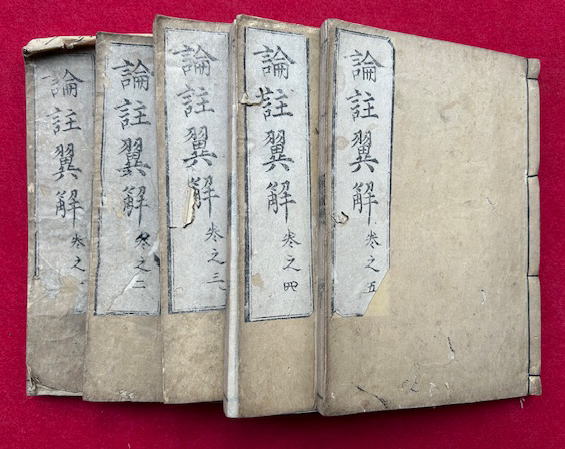 論註翼解 巻之一
論註翼解 巻之二
論註翼解 巻之三
論註翼解 巻之四
論註翼解 巻之五